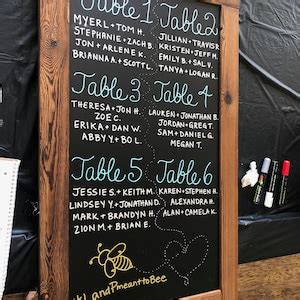 Table 1
MYERL + TOM H.
STEPHANIE + ZACH B.
JON + ARLENE K.
BRIANNA A + SCOTT L.
Table 2
JILLIAN + TRAVIS R
KRISTEN + JEFF M.
EMILY B. + SAL V.
TANYA + LOGAN R.
Table 3
THERESA + JON H.
ZOE C.
ERIKA + DAN W.
ABBY Y + BO L.
Table 4
LAUREN + JONATHAN B.
JORDAN + GREG T.
SAM + DANIEL G.
MEGAN T.
Table 5
JESSIE S. + KEITH M.
LINDSEY Y. + JONATHAN D.
MARK + BRANDYN H.
ZION M. + BRIAN E.
Table 6
KAREN + STEPHEN H.
ALEXANDRA H.
ALAN + CAMELA K.
LandPmeanttoBee